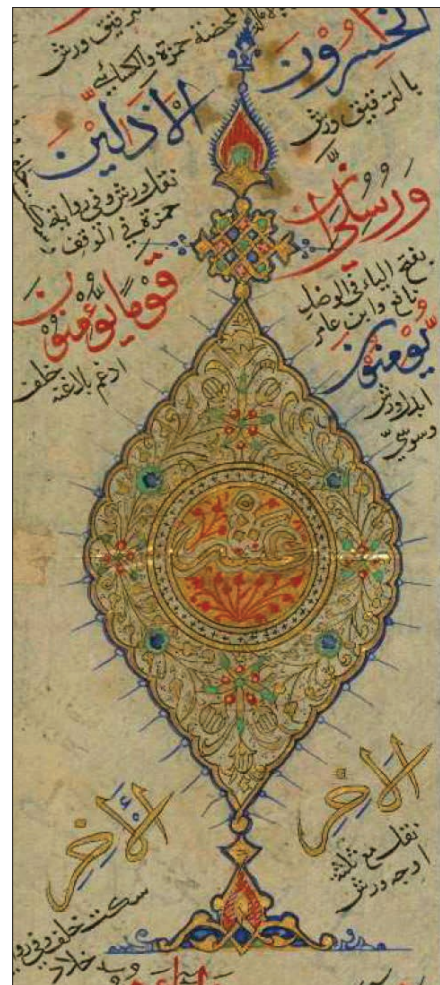 الخسرون
بالترقيق ورش
ترقيق ورش
محضة حمزة والكسائي
الاذلين
نقل ورش وفي رواية
حمزة في الوقف
ورسلي
بفتح الياء في الوصل
نافع وابن عامر
قوما يؤمنون
ادغم بلا غنة خلف
يؤمنون
ابدل ورش
وسوسي
عشر
الاخر
نقل مع ثلثة
اوجه ورش
الأخر
سكت خلف وفي
خلاد